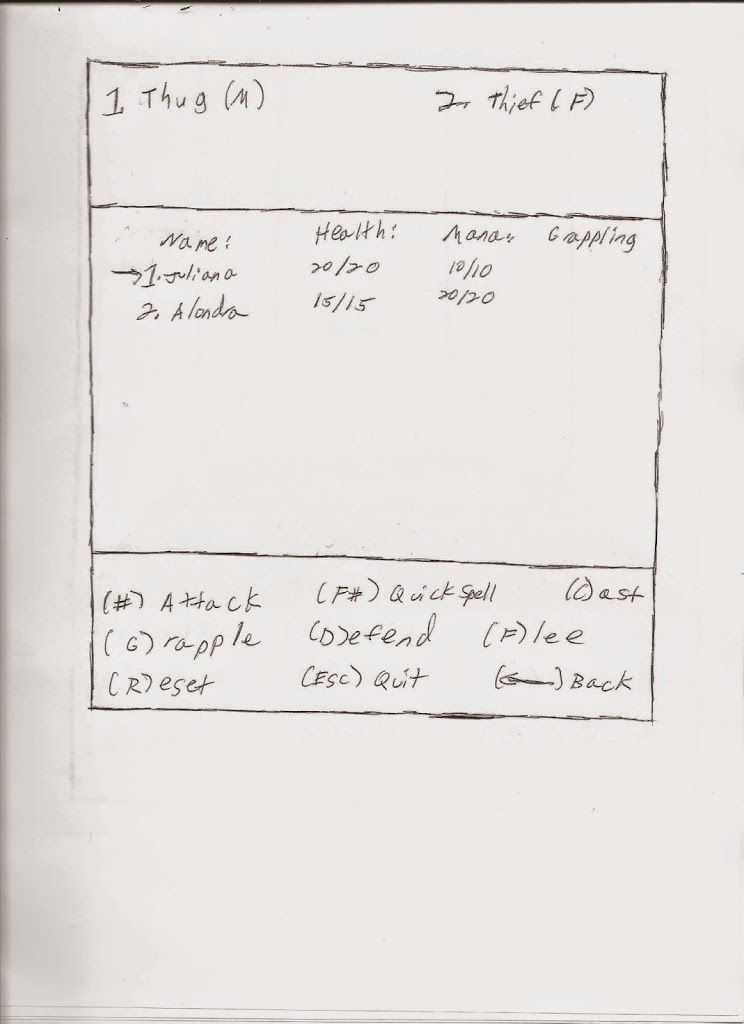 1 Thug (M) 2. Thief (F)
Name: Health: Mana: Grappling
→1. Juliana 20/20 10/10
2. Alondra 15/15 20/20
(#) Attack (F#) Quick Spell (C)ast
(G)rapple (D)efend (F)lee
(R)eset (Esc) Quit (←) Back